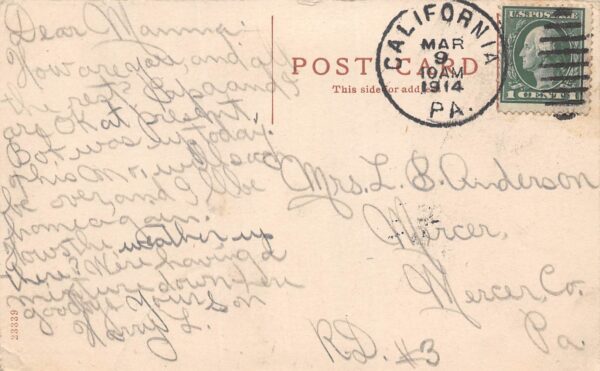 Dear Mamma:
How are you and all
the rest? Papa and I
are OK at present,
was up today.
This Mo. will soon
be over and I'll be
home again.
How's the weather up
there? We're having a
picture down here
good bye Your Son
Harry L.
23339
POST CARD
This side for add
CALIFORNIA
MAR
9
10AM
1914
PA.
U.S. POSTAGE
1 CENT 1
Mrs. L. B. Anderson
Mercer,
Mercer Co.
Pa.
R.D. #3